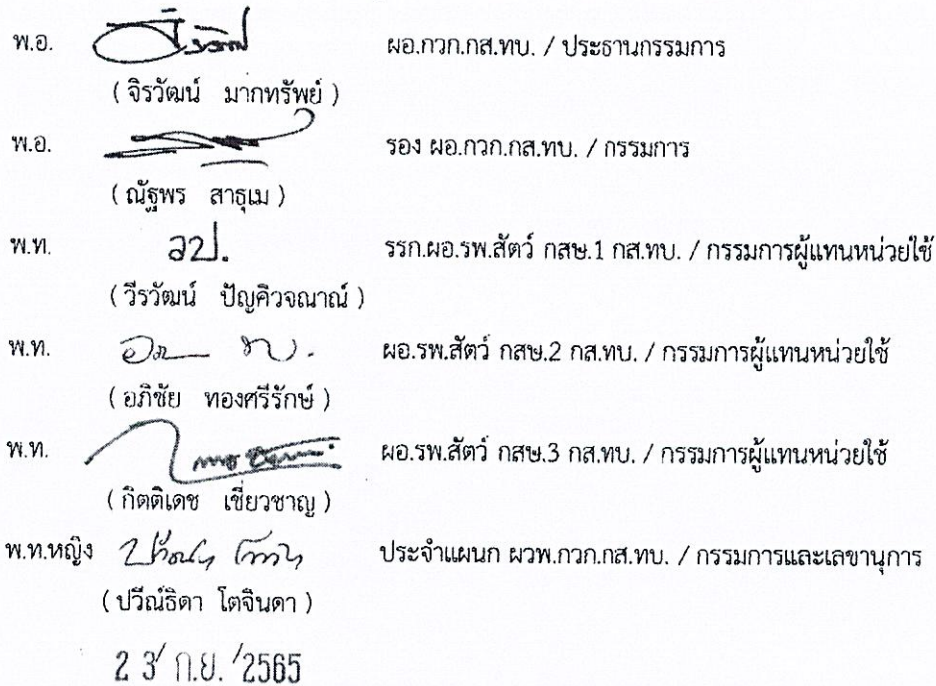 พ.อ. ผอ.กวก.กส.ทบ. / ประธานกรรมการ
( จิรวัฒน์ มากทรัพย์ )
พ.อ. รอง ผอ.กวก.กส.ทบ. / กรรมการ
( ณัฐพร สาธุเม )
พ.ท. วป. รรก.ผอ.รพ.สัตว์ กสษ.1 กส.ทบ. / กรรมการผู้แทนหน่วยใช้
( วีรวัฒน์ ปัญคิวจณาณ์ )
พ.ท. ผอ.รพ.สัตว์ กสษ.2 กส.ทบ. / กรรมการผู้แทนหน่วยใช้
( อภิชัย ทองศรีรักษ์ )
พ.ท. ผอ.รพ.สัตว์ กสษ.3 กส.ทบ. / กรรมการผู้แทนหน่วยใช้
( กิตติเดช เชี่ยวชาญ )
พ.ท.หญิง ประจำแผนก ผวพ.กวก.กส.ทบ. / กรรมการและเลขานุการ
( ปวีณ์ธิดา โตจินดา )
2 3 ก.ย. 2565